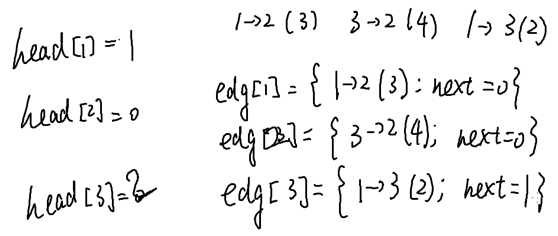 1→2 (3) 3→2 (4) 1→3(2)
head[1] = 1
edg[1] = { 1→2 (3): next=0}
head[2]=0
edg[2]= { 3→2(4); next=0}
head[3]=2
edg[3]={1→3(2); next=1}